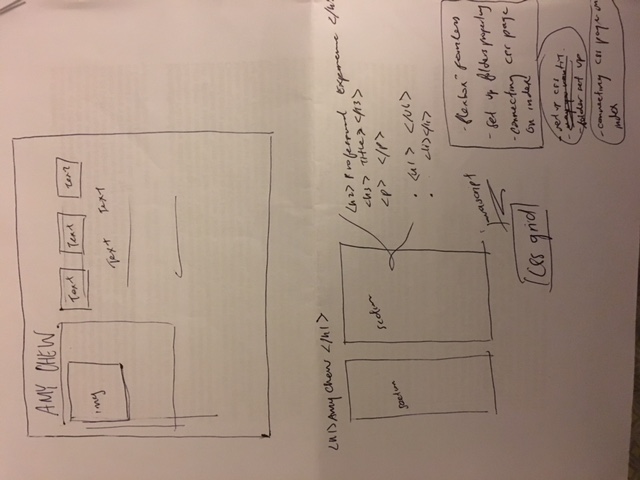 AMY CHEW
img
Text Text Text
Text Text
<h1> Amy Chew </h1>
section
section
<h2> Professional Experience </h2>
<h3> Title </h3>
<p> </p>
<ul> </ul>
<li></li>
javascript
CSS grid
- flexbox
- set up folders
- connecting css page
on index
- set up css
- folder set up
- connecting css page on
index